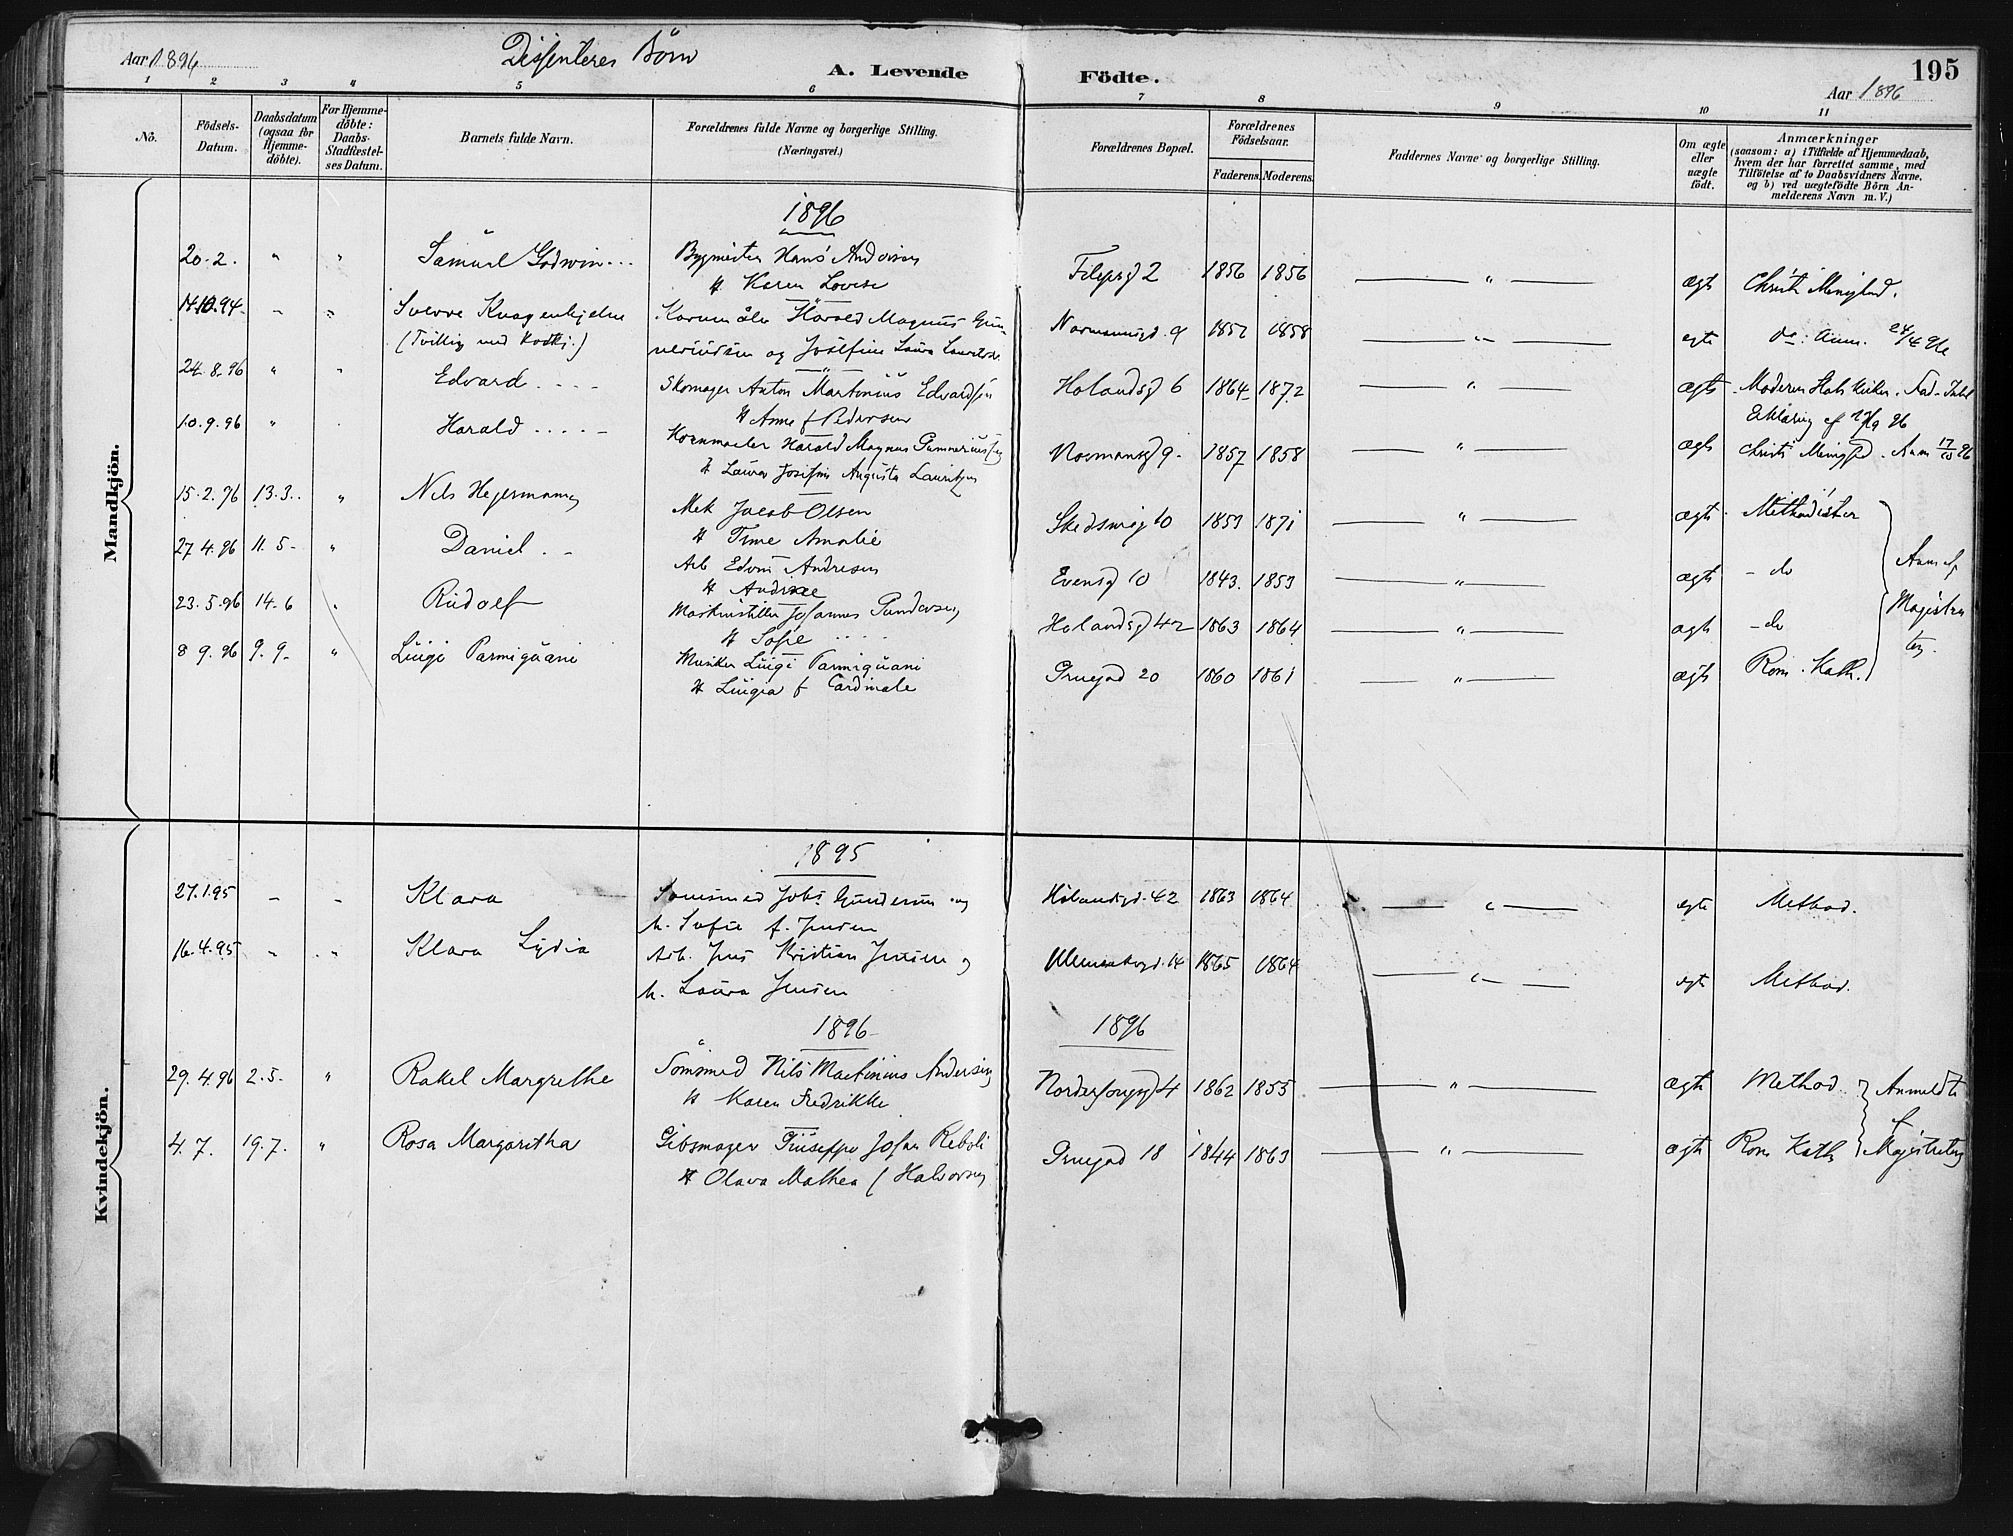 Aar 1896 Dissenteres Børn A. Levende Födte. 195
Aar 1896
1 2 3 4 5 6 7 8 9 10 11
No.
Födsels-Datum.
Daabsdatum (ogsaa for Hjemme-döbte).
For Hjemme-döbte: Daabs-Stadfæstel-ses Datum.
Barnets fulde Navn.
Forældrenes fulde Navne og borgerlige Stilling.
(Næringsvei.)
Forældrenes Bopæl.
Forældrenes Födselsaar.
Faderens. Moderens.
Faddernes Navne og borgerlige Stilling.
Om ægte eller uægte födt.
Anmærkninger
(saasom: a) i Tilfælde af Hjemmedaab,
hvem der har forrettet samme, med
Tilföielse af to Daabsvidners Navne,
og b) ved uægtefödte Börn An-
melderens Navn m. V.)
Mandkjön.
1896
20.2. " " Samuel Godwin... Bygmester Hans Andersen Filipsgd 2 1856 1856 — " — ægte Christi Menighed.
H Karen Lovise
14.10.94 - " Sverre Knagenhjelm Kornmåler Harald Magnus Gun- Normannsgd. 9 1857 1858 — " — egte do: Anm. 24/4 96
(Tvilling med ) neriussen og Josefine Laura Lauritzen
24.8.96 " " Edvard.... Skomager Anton Martinius Edvardsen Holandsg 6 1864 1872 — " — ægte Moderen Stats Kirken.
H Anne f Pedersen Erklæring af 9 96
10.9.96 " . Harald..... Kornmaaler Harald Magnus Gunneriussen Normansg 9. 1857 1858 — " — ægte Christi Menighed. Anm 17/10 96
H Laura Josefine Augusta Lauritzen
15.2.96 13.3.. " Nils Hejermann Mek Jacob Olsen Skedsmog 10 1853 1871 — " — ægte. Methodister
H Amalie
27.4.96 11.5- " Daniel.- Arb Edvin Andresen Evensg 10 1843. 1853 — " — ægte - do Anm af
H
23.5.96 14-6 " Rudolf Maskinstiller Johannes Gundersen Holandsg 42 1863 1864 — " — ægte - do Magistra
H Sofie ten.
8.9.96 9.9- " Luigi Parmiguani Musiker Luigi Parmiguani Gruegad 20 1860 1861 — " — ægte Rom. Kath.
H Luigia f Cardinale
Kvindekjön.
1895
27.1.95 - - Klara Johs Gundersen og Hölandsgd. 42 1863 1864 — " — egte Method.
h. Sofie f. Jensen
16.4.95 " " Klara Lydia Arb. Jens Kristian Jensen og 14 1865 1864 — " — egte Method.
h. Laura Jensen
1896 1896
29.4.96 2.5. " Rakel Margrethe Nils Martinius Andersen 4 1862 1855 — " — ægte Method. Anmeldte
H Karen Fredrikke
4.7. 19.7. " Rosa Margaritha Gibsmager Giuseppe Johan Reboli Gruegad 18 1844 1863 — " — ægte Rom Kath Magistraten
H Olava Mathea f Halvorsen